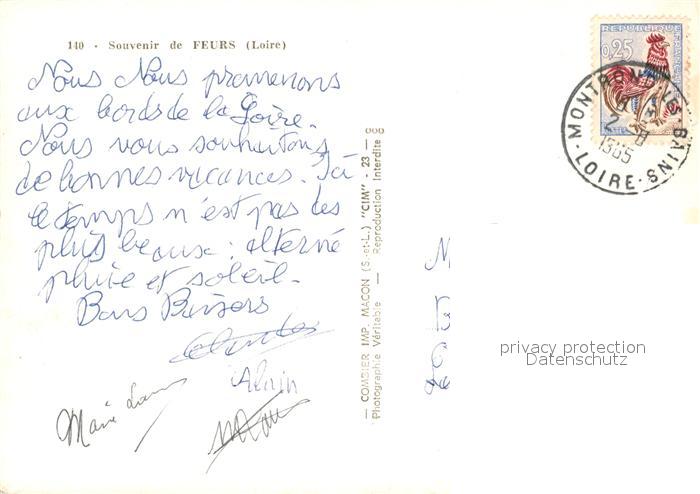 140 - Souvenir de FEURS (Loire)
Nous Nous promenons
aux bords de la Loire.
Nous vous souhaitons
de bonnes vacances. Ici
le temps n'est pas des
plus beaux : alterné
pluie et soleil.
Bons Baisers
Alain
Marie
COMBIER IMP. MACON (S.-et-L.) "CIM" - 23 -
Photographie Véritable - Reproduction Interdite
REPUBLIQUE FRANÇAISE
0,25
MONTROND-LES-BAINS
LOIRE
1965
privacy protection
Datenschutz